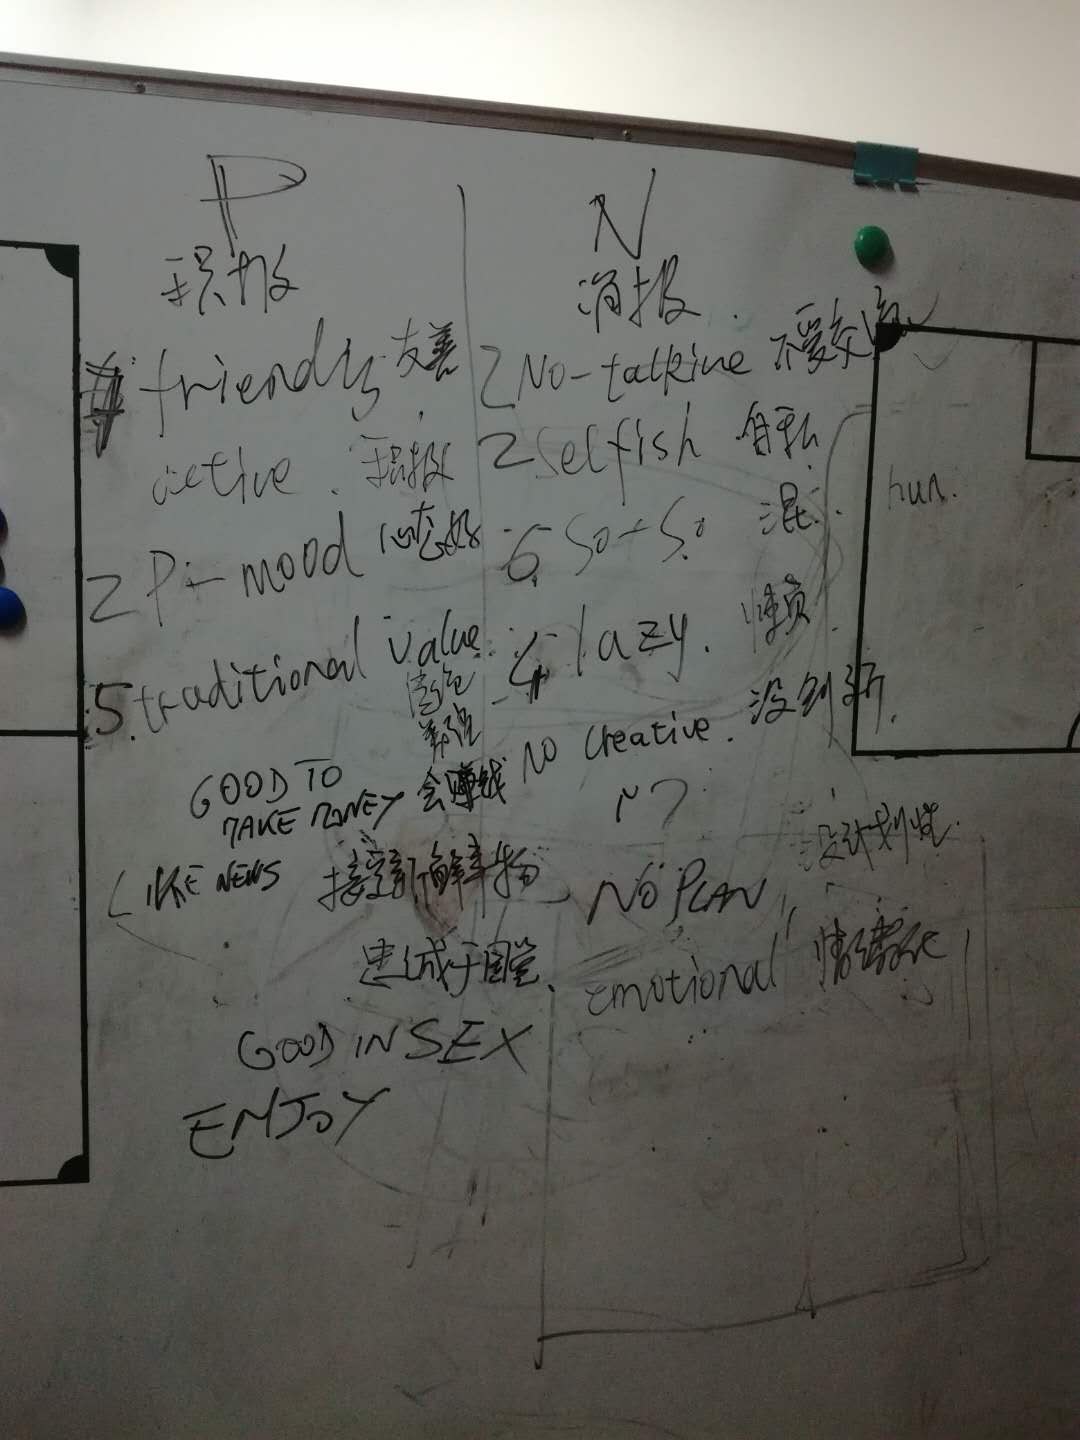 P
积极
friendly 友善
active. 积极
2 P+ mood 心态好
5. traditional value
GOOD TO
MAKE MONEY 会赚钱
LIKE NEWS 接受新鲜事物
忠诚于国党
GOOD IN SEX
ENJOY
N
消极.
2 No-talkine 不爱交流
2 Selfish 自私
6. So-So 混.
4 lazy. 懒惰
NO Creative. 没创新.
NO PLAN 没计划性.
emotional 情绪化
hun.